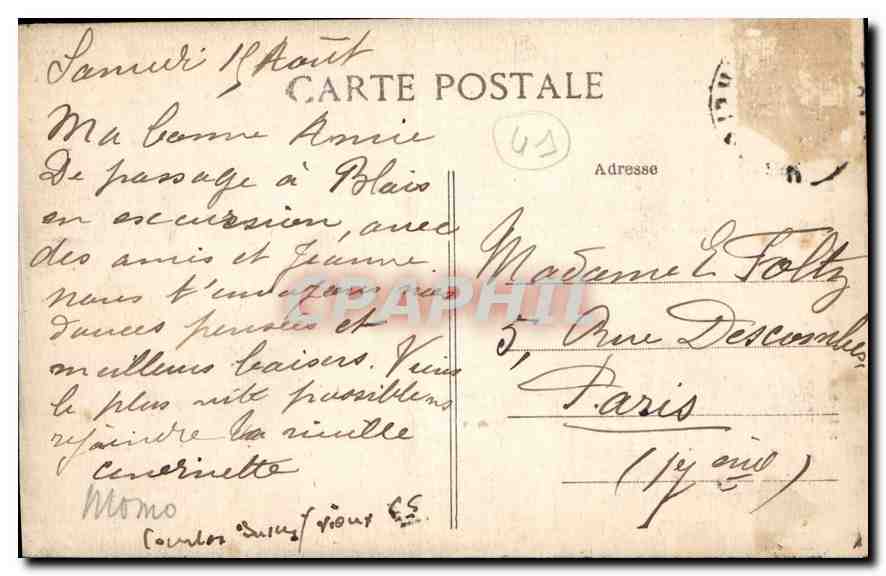 Samedi 15 Août
CARTE POSTALE
41
Ma bonne Amie
De passage à Blois
en excursion, avec
des amis et Jeanne
nous t'envoyons nos
douces pensées et
meilleurs baisers. Viens
le plus vite possible
rejoindre ta vieille
Momo
Adresse
Madame E Foltz
5, Rue Descombes
Paris
(17ème)
CPAPHIL